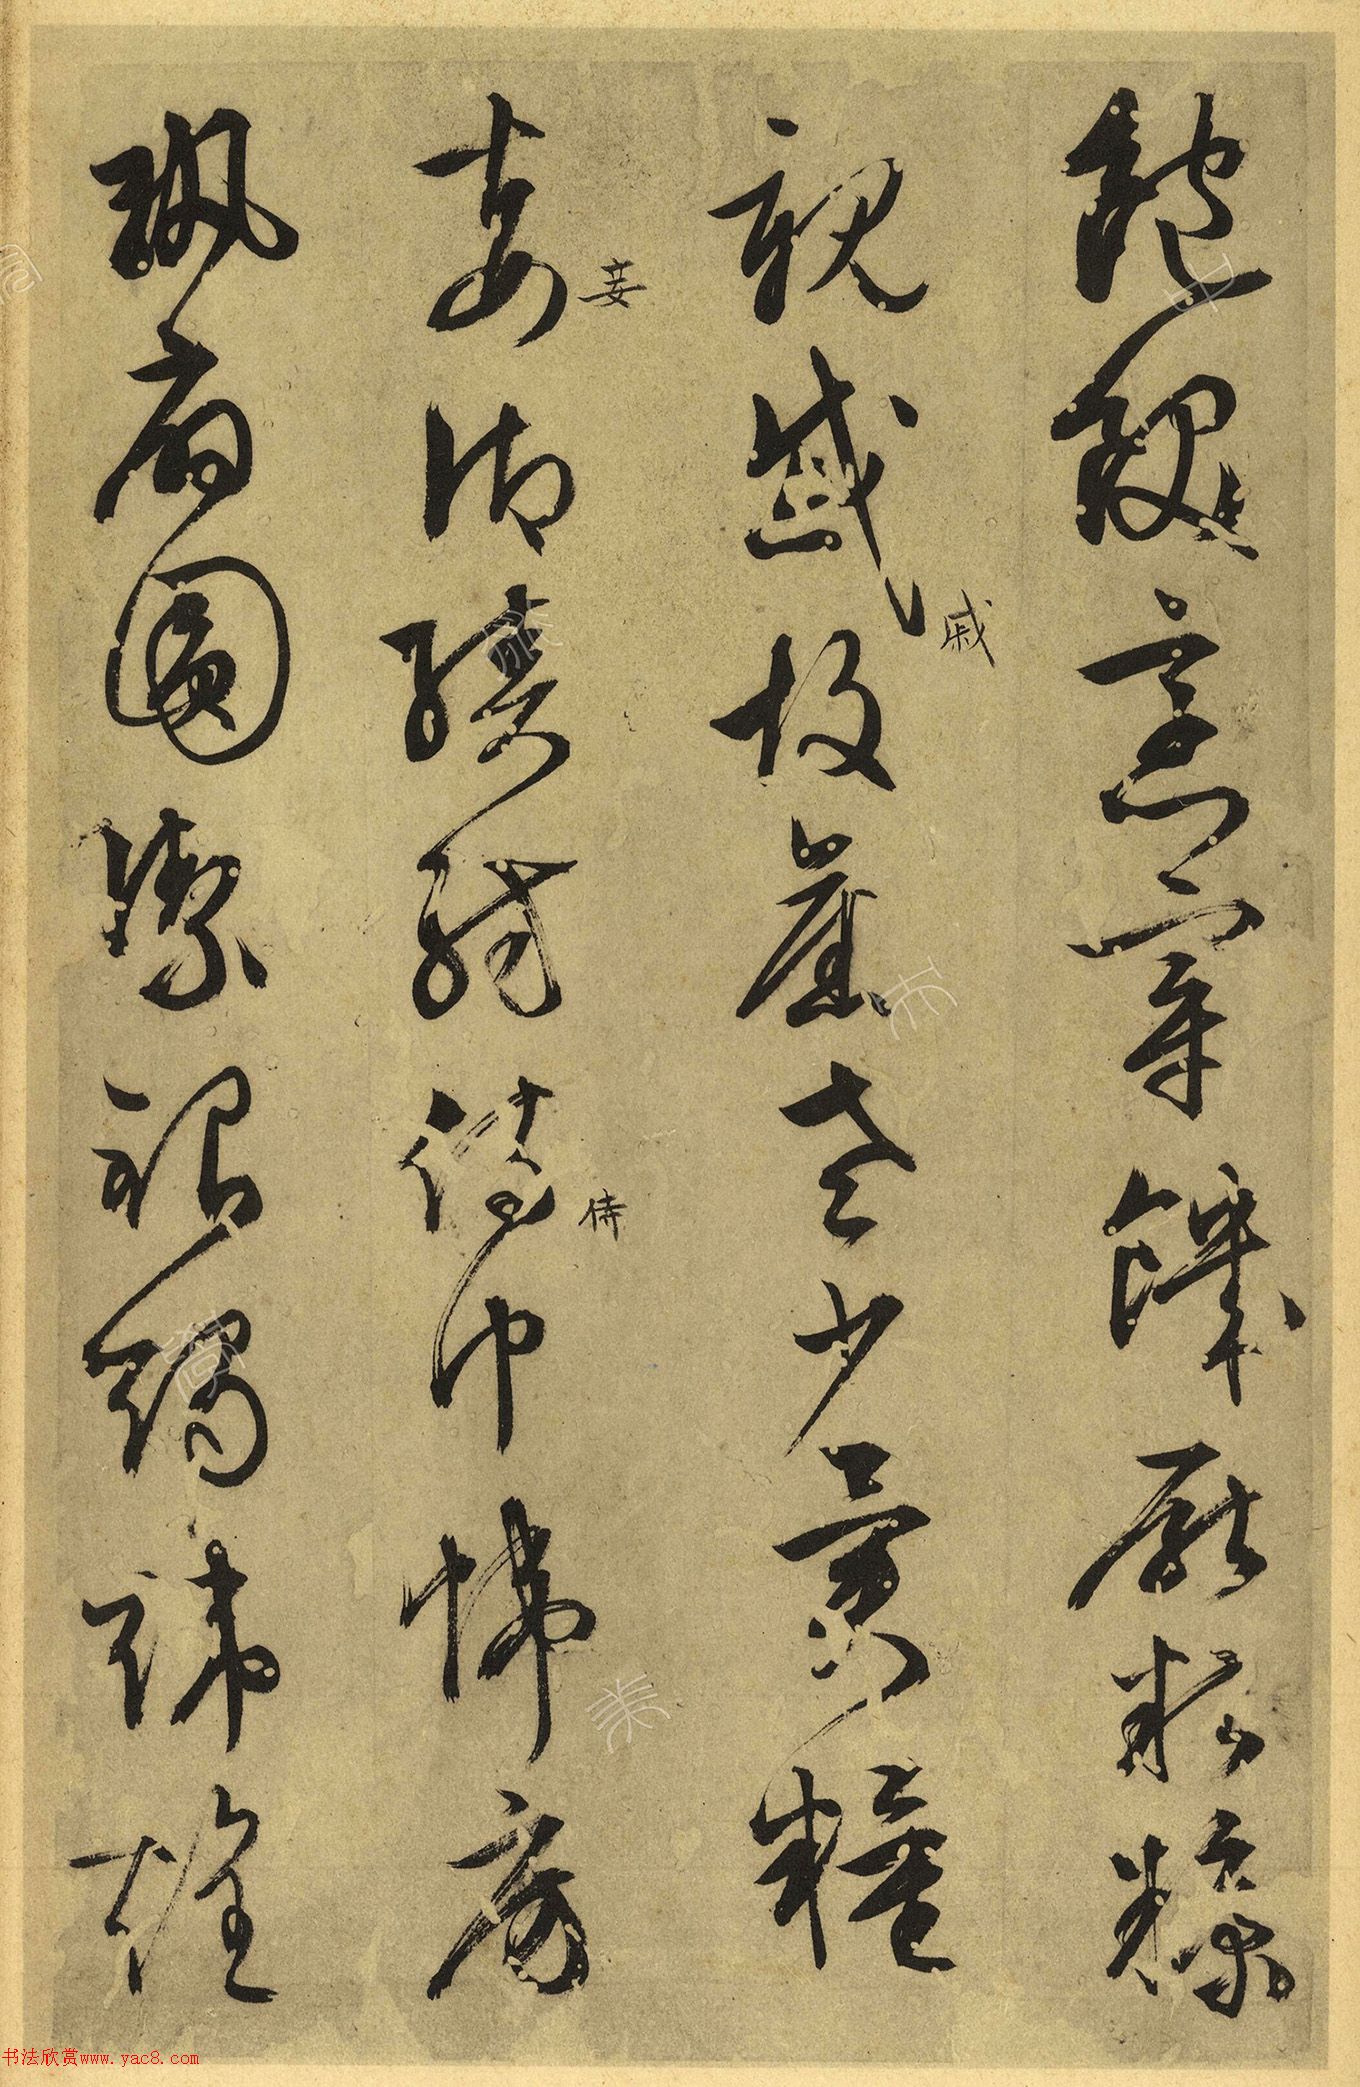 飽飫烹宰饑厭糟糠
親戚故舊老少異糧
妾御績紡侍巾帷房
紈扇圓潔銀燭煒煌
戚
妾
侍
书法欣赏www.yac8.com